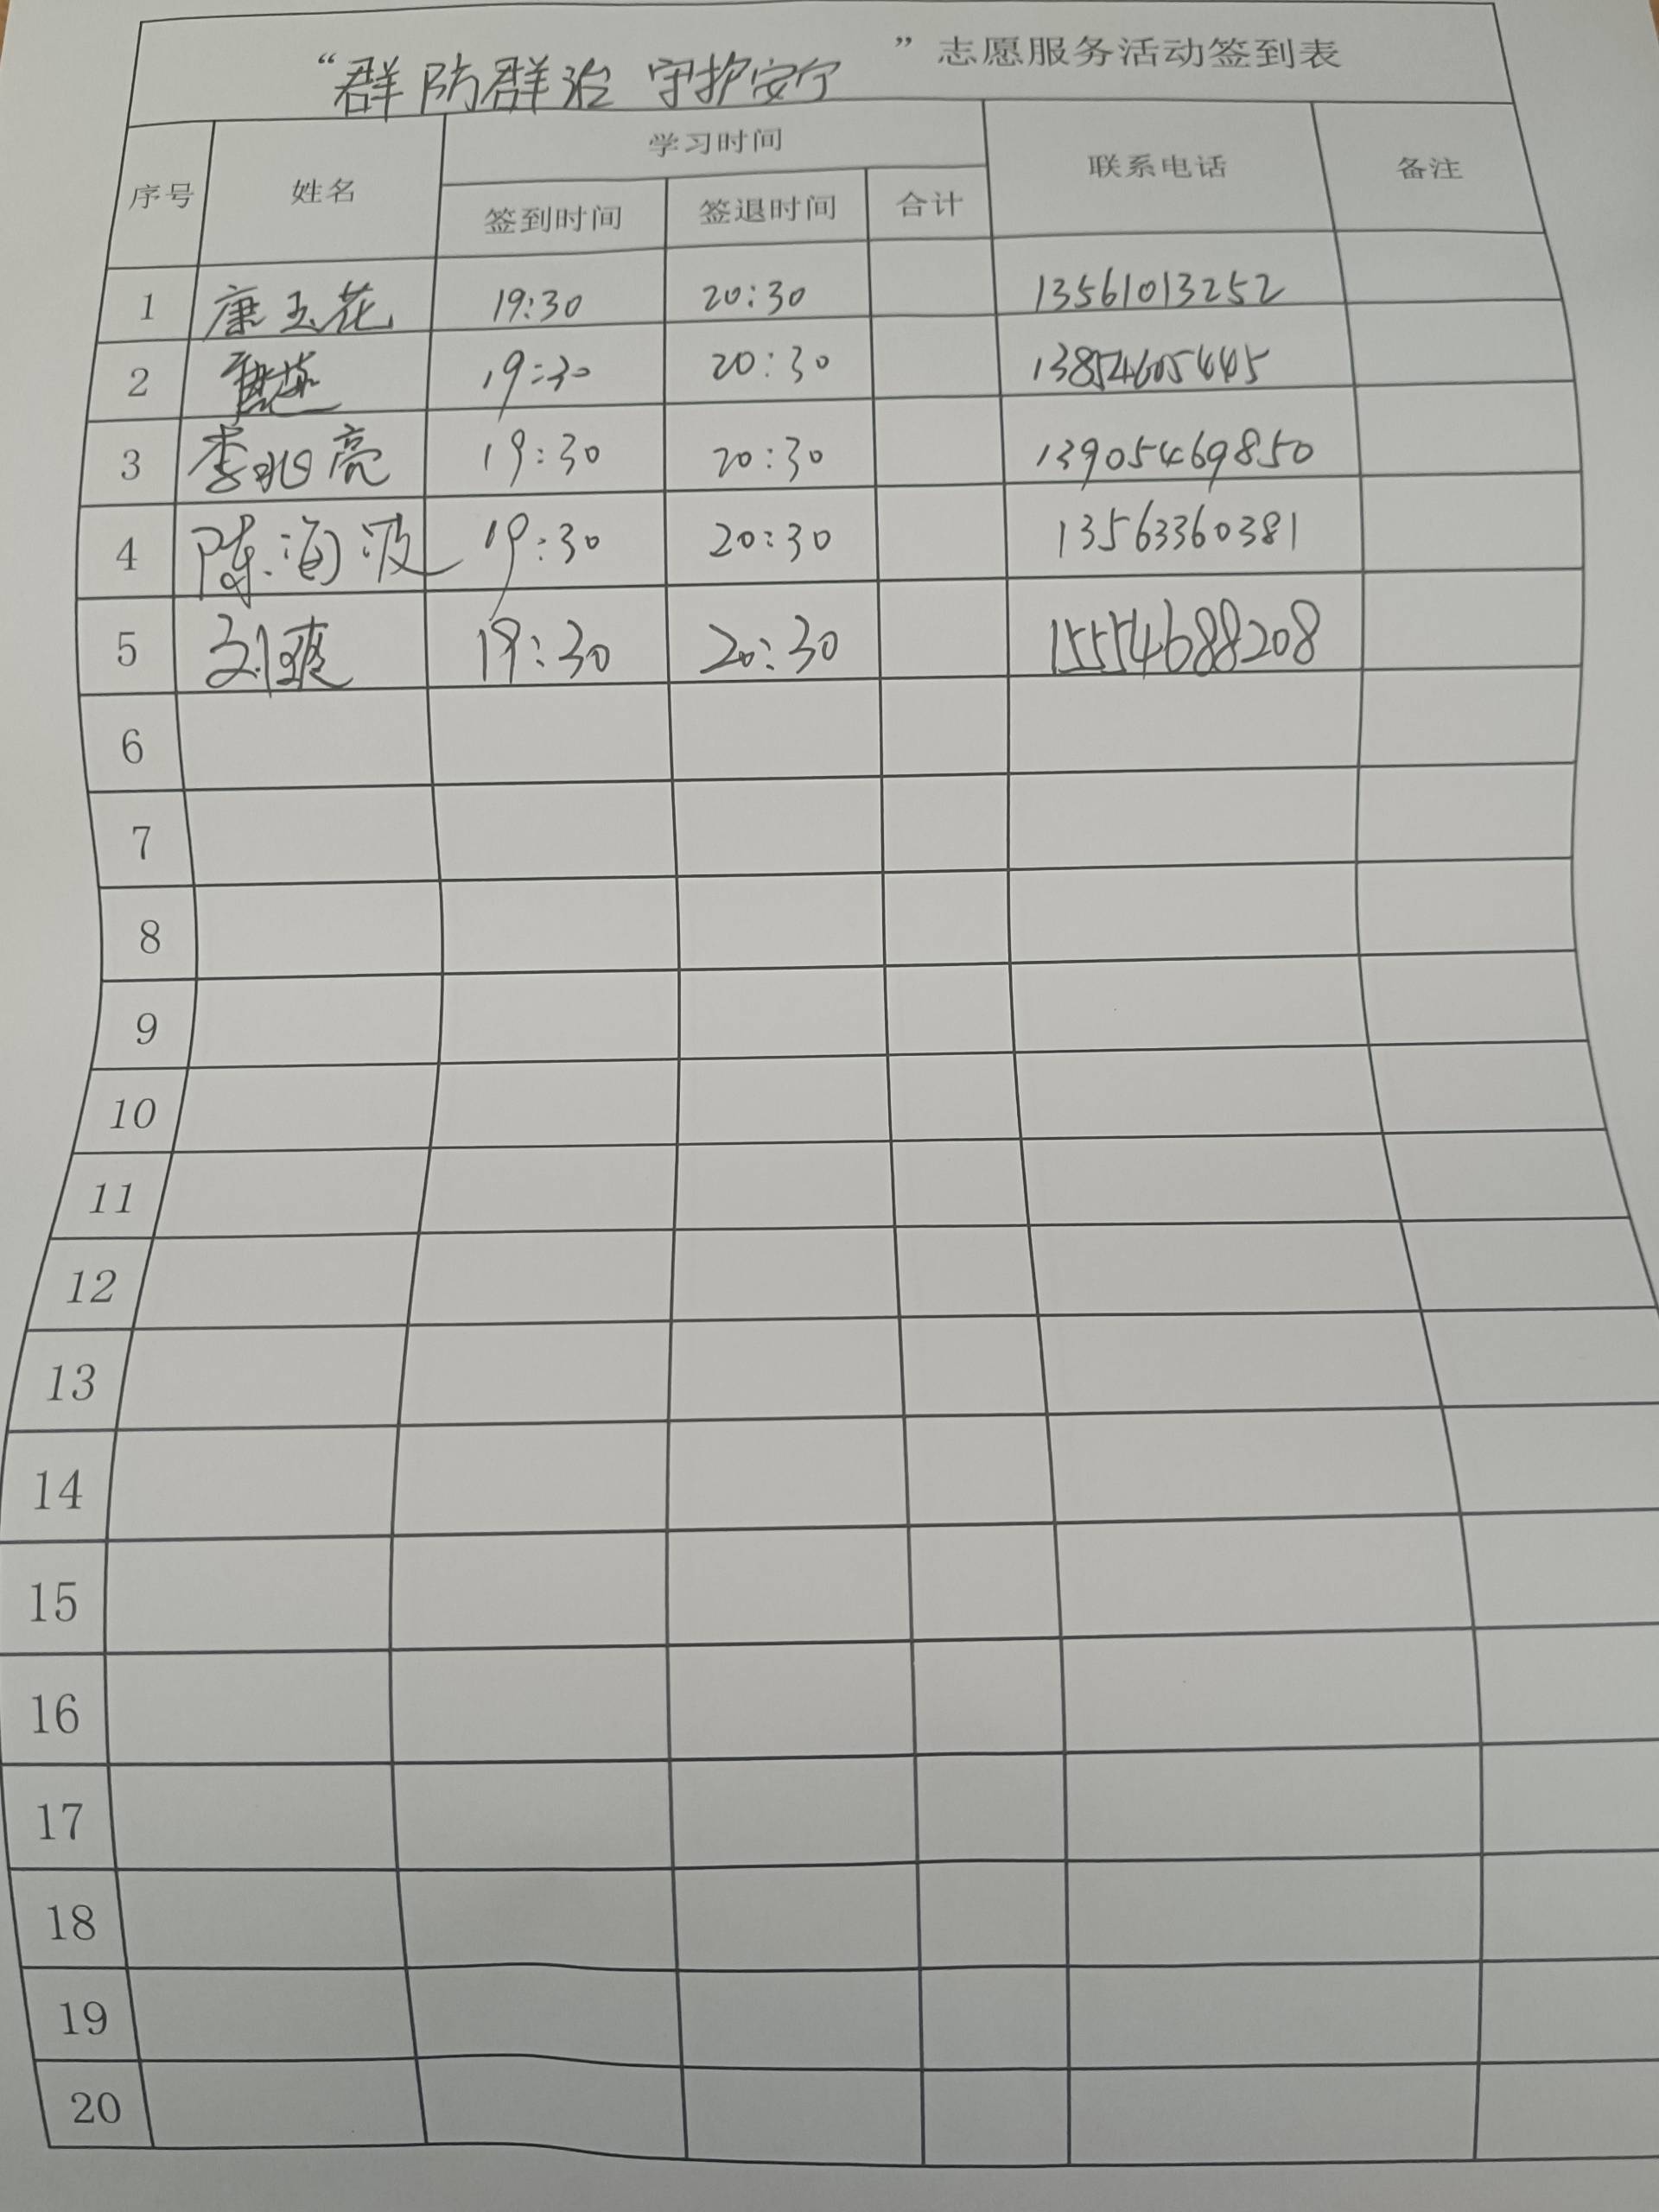 “群防群治 守护安宁”志愿服务活动签到表
序号 姓名 学习时间 联系电话 备注
签到时间 签退时间 合计
1 康玉花 19:30 20:30 13561013252
2 19:30 20:30 13854605445
3 李兆亮 19:30 20:30 13905469850
4 陈海波 19:30 20:30 13563360381
5 刘爽 19:30 20:30 15554688208
6
7
8
9
10
11
12
13
14
15
16
17
18
19
20